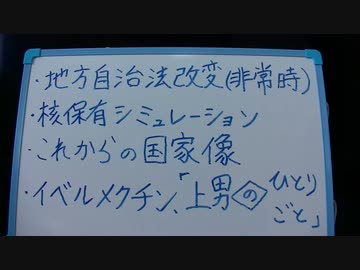 ・地方自治法改変(非常時)
・核保有シミュレーション
・これからの国家像
・イベルメクチン、「上男のひとりごと」